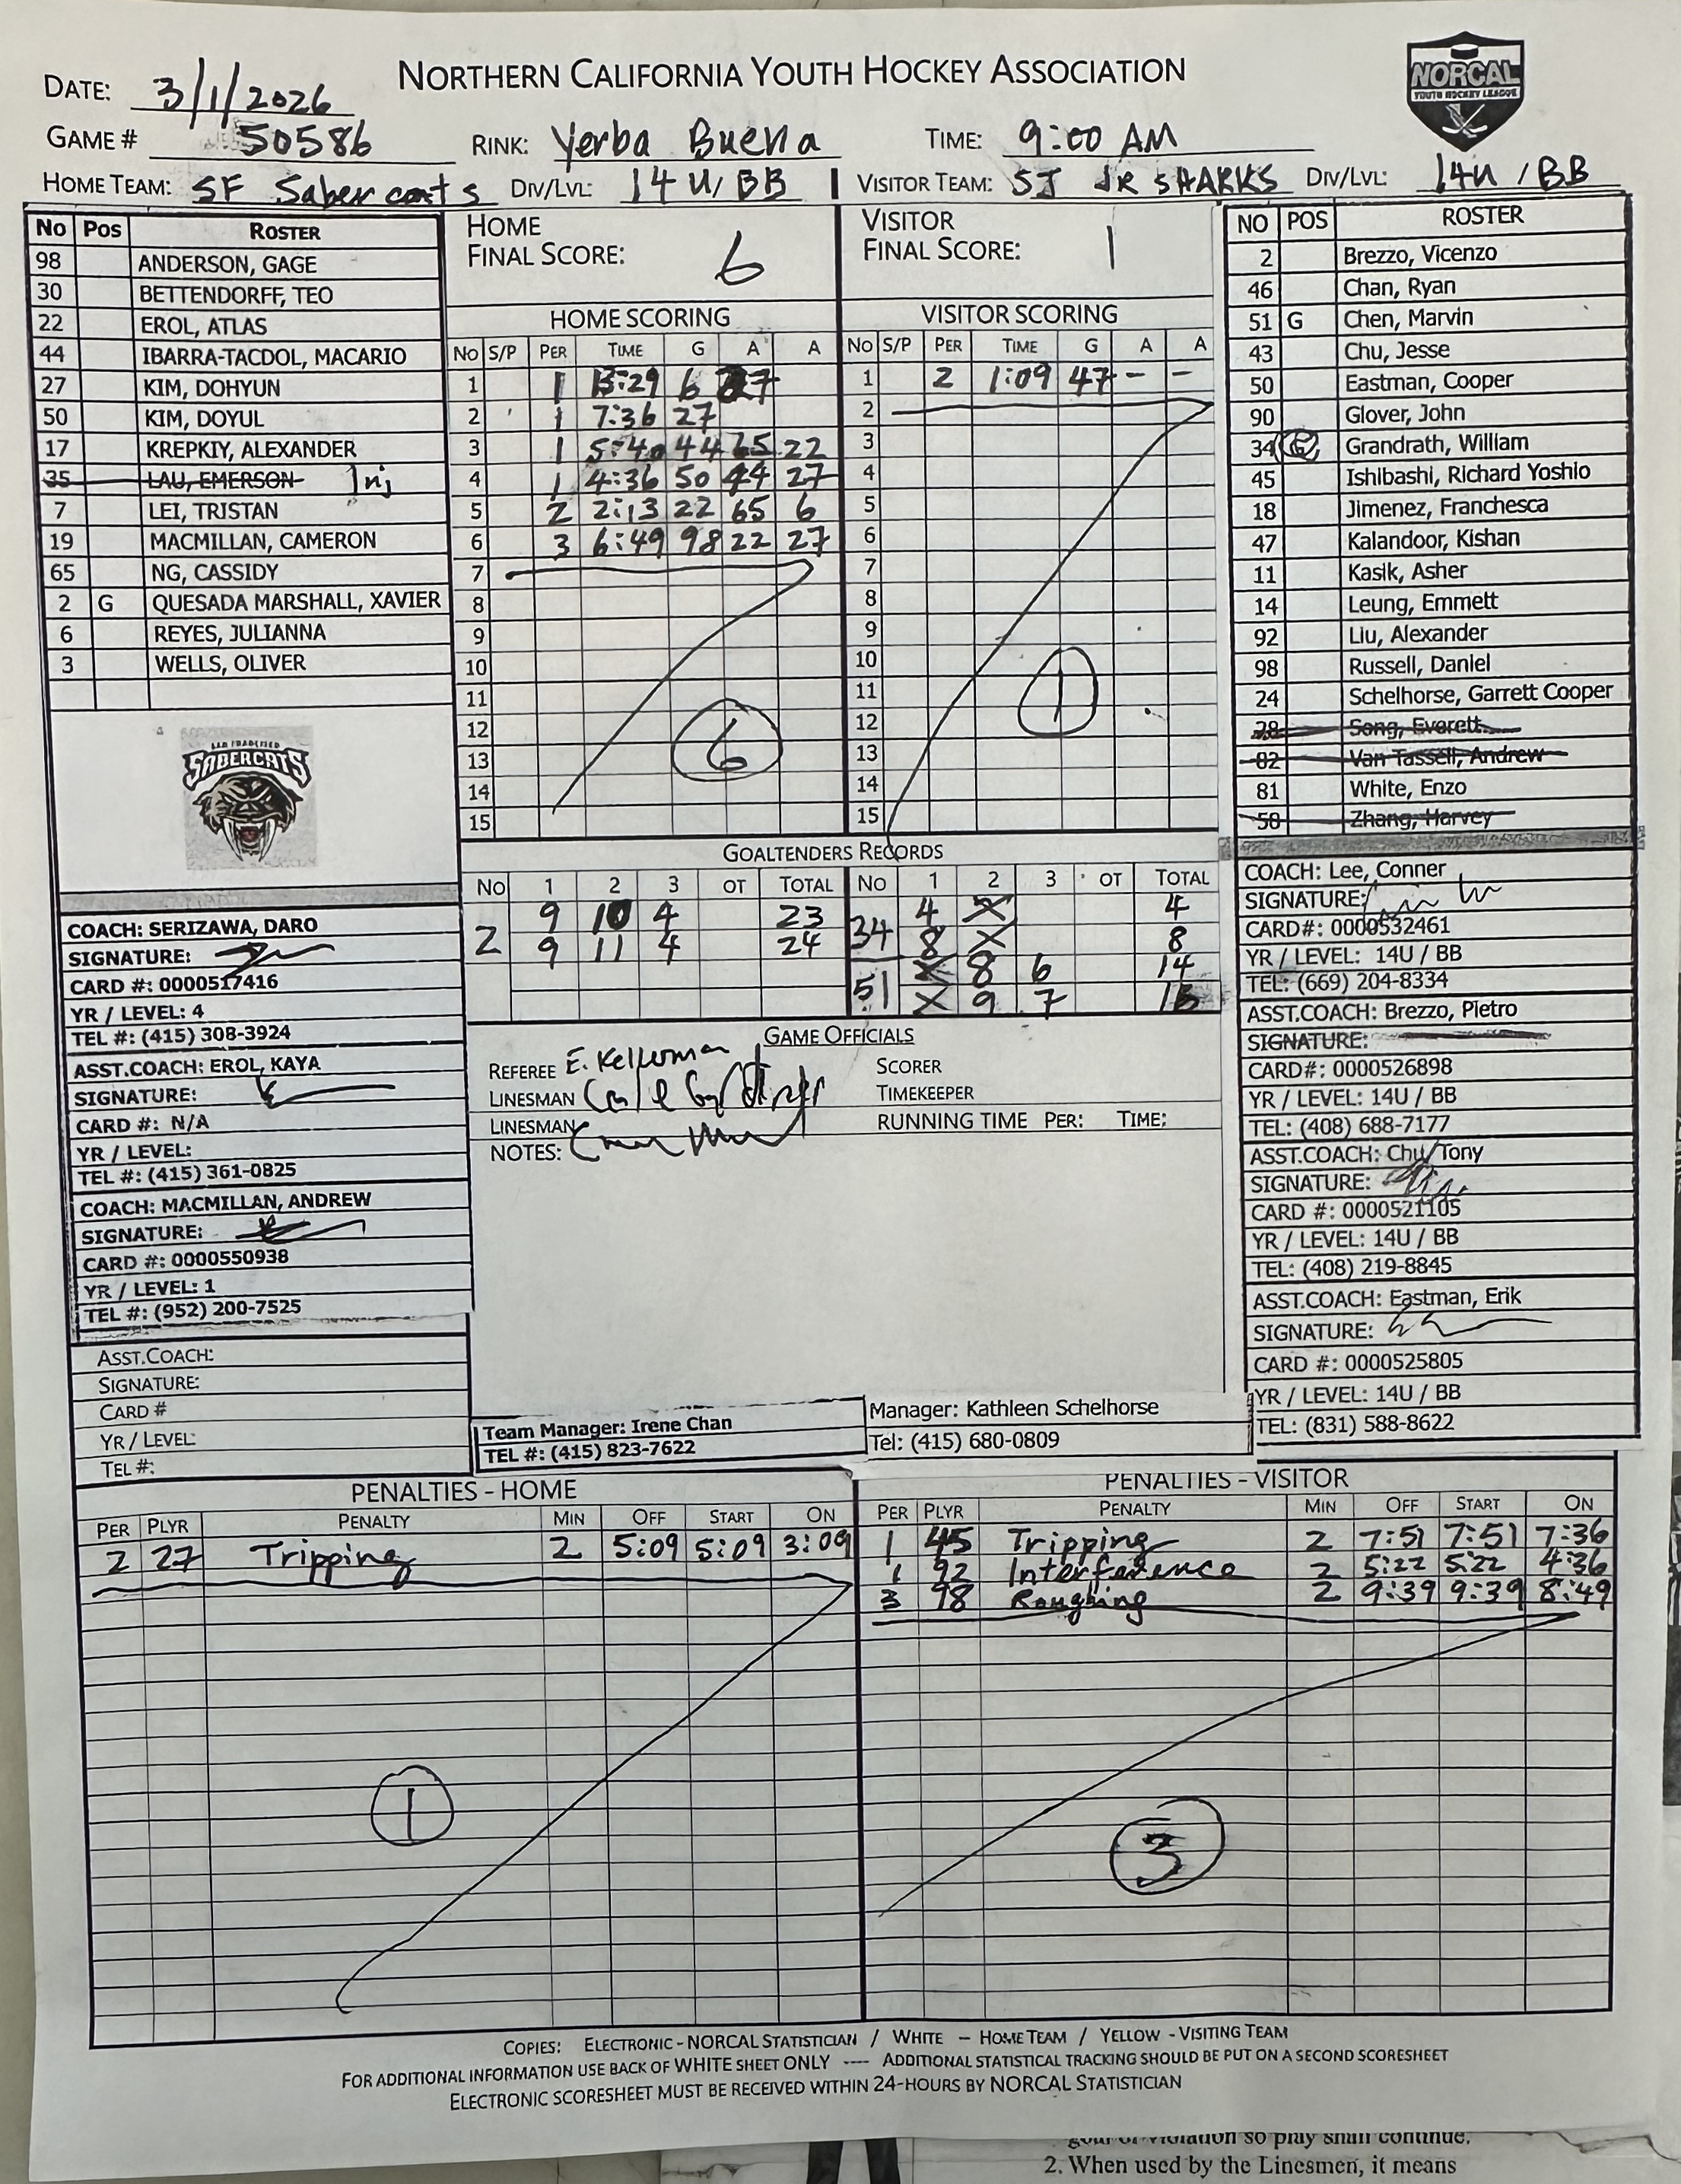 NORTHERN CALIFORNIA YOUTH HOCKEY ASSOCIATION
NORCAL
YOUTH HOCKEY LEAGUE
DATE: 3/1/2026
GAME # 50586 RINK: Yerba Buena TIME: 9:00 AM
HOME TEAM: SF Sabercats DIV/LVL: 14U/BB VISITOR TEAM: SJ JR SHARKS DIV/LVL: 14U / BB
No Pos ROSTER
98 ANDERSON, GAGE
30 BETTENDORFF, TEO
22 EROL, ATLAS
44 IBARRA-TACDOL, MACARIO
27 KIM, DOHYUN
50 KIM, DOYUL
17 KREPKIY, ALEXANDER
35 LAU, EMERSON Inj
7 LEI, TRISTAN
19 MACMILLAN, CAMERON
65 NG, CASSIDY
2 G QUESADA MARSHALL, XAVIER
6 REYES, JULIANNA
3 WELLS, OLIVER
SAN FRANCISCO
SABERCATS
COACH: SERIZAWA, DARO
SIGNATURE:
CARD #: 0000517416
YR / LEVEL: 4
TEL #: (415) 308-3924
ASST.COACH: EROL, KAYA
SIGNATURE:
CARD #: N/A
YR / LEVEL:
TEL #: (415) 361-0825
COACH: MACMILLAN, ANDREW
SIGNATURE:
CARD #: 0000550938
YR / LEVEL: 1
TEL #: (952) 200-7525
ASST.COACH:
SIGNATURE:
CARD #
YR / LEVEL:
TEL #:
HOME
FINAL SCORE: 6
HOME SCORING
No S/P PER TIME G A A
1 1 13:29 6 27
2 1 7:36 27
3 1 5:40 44 65 22
4 1 4:36 50 44 27
5 2 2:13 22 65 6
6 3 6:49 98 22 27
7
8
9
10
11
12
13
14
15
6
VISITOR
FINAL SCORE: 1
VISITOR SCORING
No S/P PER TIME G A A
1 2 1:09 47 - -
2
3
4
5
6
7
8
9
10
11
12
13
14
15
1
GOALTENDERS RECORDS
No 1 2 3 OT TOTAL
2
9 10 4 23
9 11 4 24
No 1 2 3 OT TOTAL
34
4 X 4
8 X 8
51
X 8 6 14
X 9 7
GAME OFFICIALS
REFEREE E. Kellerman
LINESMAN
LINESMAN
NOTES:
SCORER
TIMEKEEPER
RUNNING TIME PER: TIME:
Team Manager: Irene Chan
TEL #: (415) 823-7622
Manager: Kathleen Schelhorse
Tel: (415) 680-0809
NO POS ROSTER
2 Brezzo, Vicenzo
46 Chan, Ryan
51 G Chen, Marvin
43 Chu, Jesse
50 Eastman, Cooper
90 Glover, John
34 G Grandrath, William
45 Ishibashi, Richard Yoshio
18 Jimenez, Franchesca
47 Kalandoor, Kishan
11 Kasik, Asher
14 Leung, Emmett
92 Liu, Alexander
98 Russell, Daniel
24 Schelhorse, Garrett Cooper
Song, Everett
82 Van Tassell, Andrew
81 White, Enzo
58 Zhang, Harvey
COACH: Lee, Conner
SIGNATURE:
CARD#: 0000532461
YR / LEVEL: 14U / BB
TEL: (669) 204-8334
ASST.COACH: Brezzo, Pietro
SIGNATURE:
CARD#: 0000526898
YR / LEVEL: 14U / BB
TEL: (408) 688-7177
ASST.COACH: Chu, Tony
SIGNATURE:
CARD #: 0000521105
YR / LEVEL: 14U / BB
TEL: (408) 219-8845
ASST.COACH: Eastman, Erik
SIGNATURE:
CARD #: 0000525805
YR / LEVEL: 14U / BB
TEL: (831) 588-8622
PENALTIES - HOME
PER PLYR PENALTY MIN OFF START ON
2 27 Tripping 2 5:09 5:09 3:09
1
PENALTIES - VISITOR
PER PLYR PENALTY MIN OFF START ON
1 45 Tripping 2 7:51 7:51 7:36
1 92 Interference 2 5:22 5:22 4:36
3 98 Roughing 2 9:39 9:39 8:49
3
COPIES: ELECTRONIC - NORCAL STATISTICIAN / WHITE – HOME TEAM / YELLOW - VISITING TEAM
FOR ADDITIONAL INFORMATION USE BACK OF WHITE SHEET ONLY ---- ADDITIONAL STATISTICAL TRACKING SHOULD BE PUT ON A SECOND SCORESHEET
ELECTRONIC SCORESHEET MUST BE RECEIVED WITHIN 24-HOURS BY NORCAL STATISTICIAN
goal or violation so play shall continue.
2. When used by the Linesmen, it means